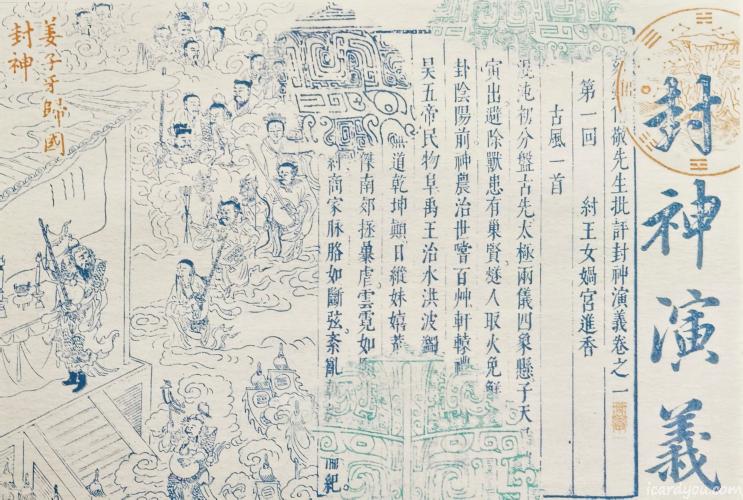 封神演義
敬先生批評封神演義卷之一
第一回 紂王女媧宮進香
古風一首
沌初分盤古先太極兩儀四象懸子天
寅出避除獸患有巢賢燧人取火免鮮
卦陰陽前神農治世嘗百艸軒轅禮
昊五帝民物阜禹王治水洪波蠲
無道乾坤顛日縱妹嬉荒
桀南郊拯暴虐雲霓如
紂商家脉胳如斷弦紊亂
紀
姜子牙歸國
封神
icardyou.com